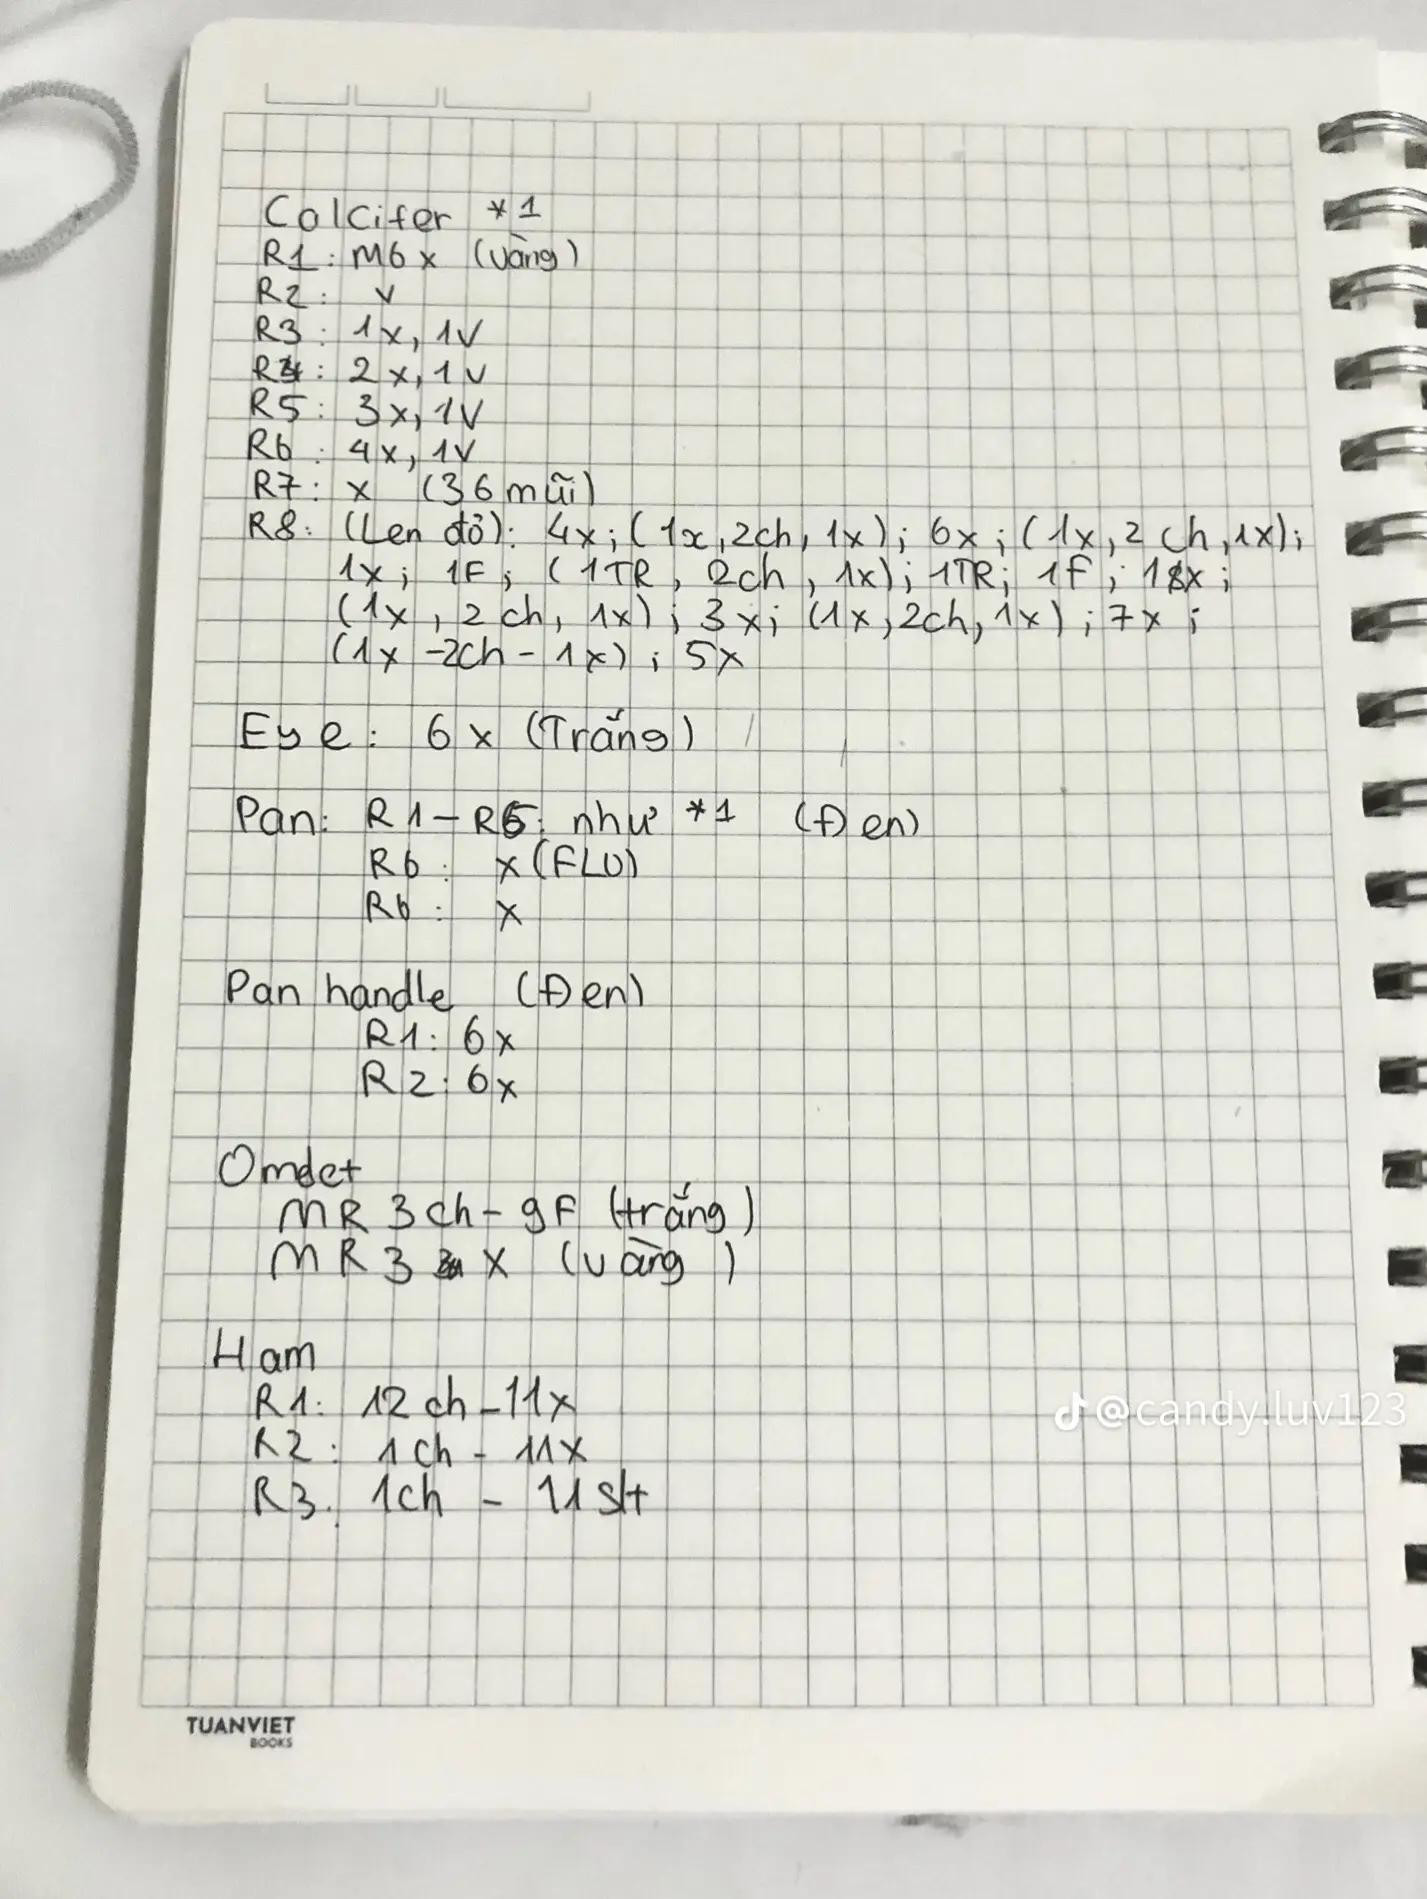 Calcifer *1
R1: M6x (vàng)
R2: v
R3: 1x, 1v
R4: 2x, 1v
R5: 3x, 1v
R6: 4x, 1v
R7: x (36 mũi)
R8: (Len đỏ): 4x; (1x, 2ch, 1x); 6x; (1x, 2ch, 1x);
1x; 1F; (1TR, 2ch, 1x); 1TR; 1F; 1x;
(1x, 2ch, 1x); 3x; (1x, 2ch, 1x); 7x;
(1x -2ch - 1x); 5x
Eye: 6x (Trắng)
Pan: R1-R5: như *1 (Đen)
R6: x (FLO)
R6: x
Pan handle (Đen)
R1: 6x
R2: 6x
Omelet
MR 3ch - 9F (trắng)
MR 3 x (vàng)
Ham
R1: 12ch - 11x
R2: 1ch - 11x
R3. 1ch - 11 slt
@candy.luv123
TUANVIET
BOOKS